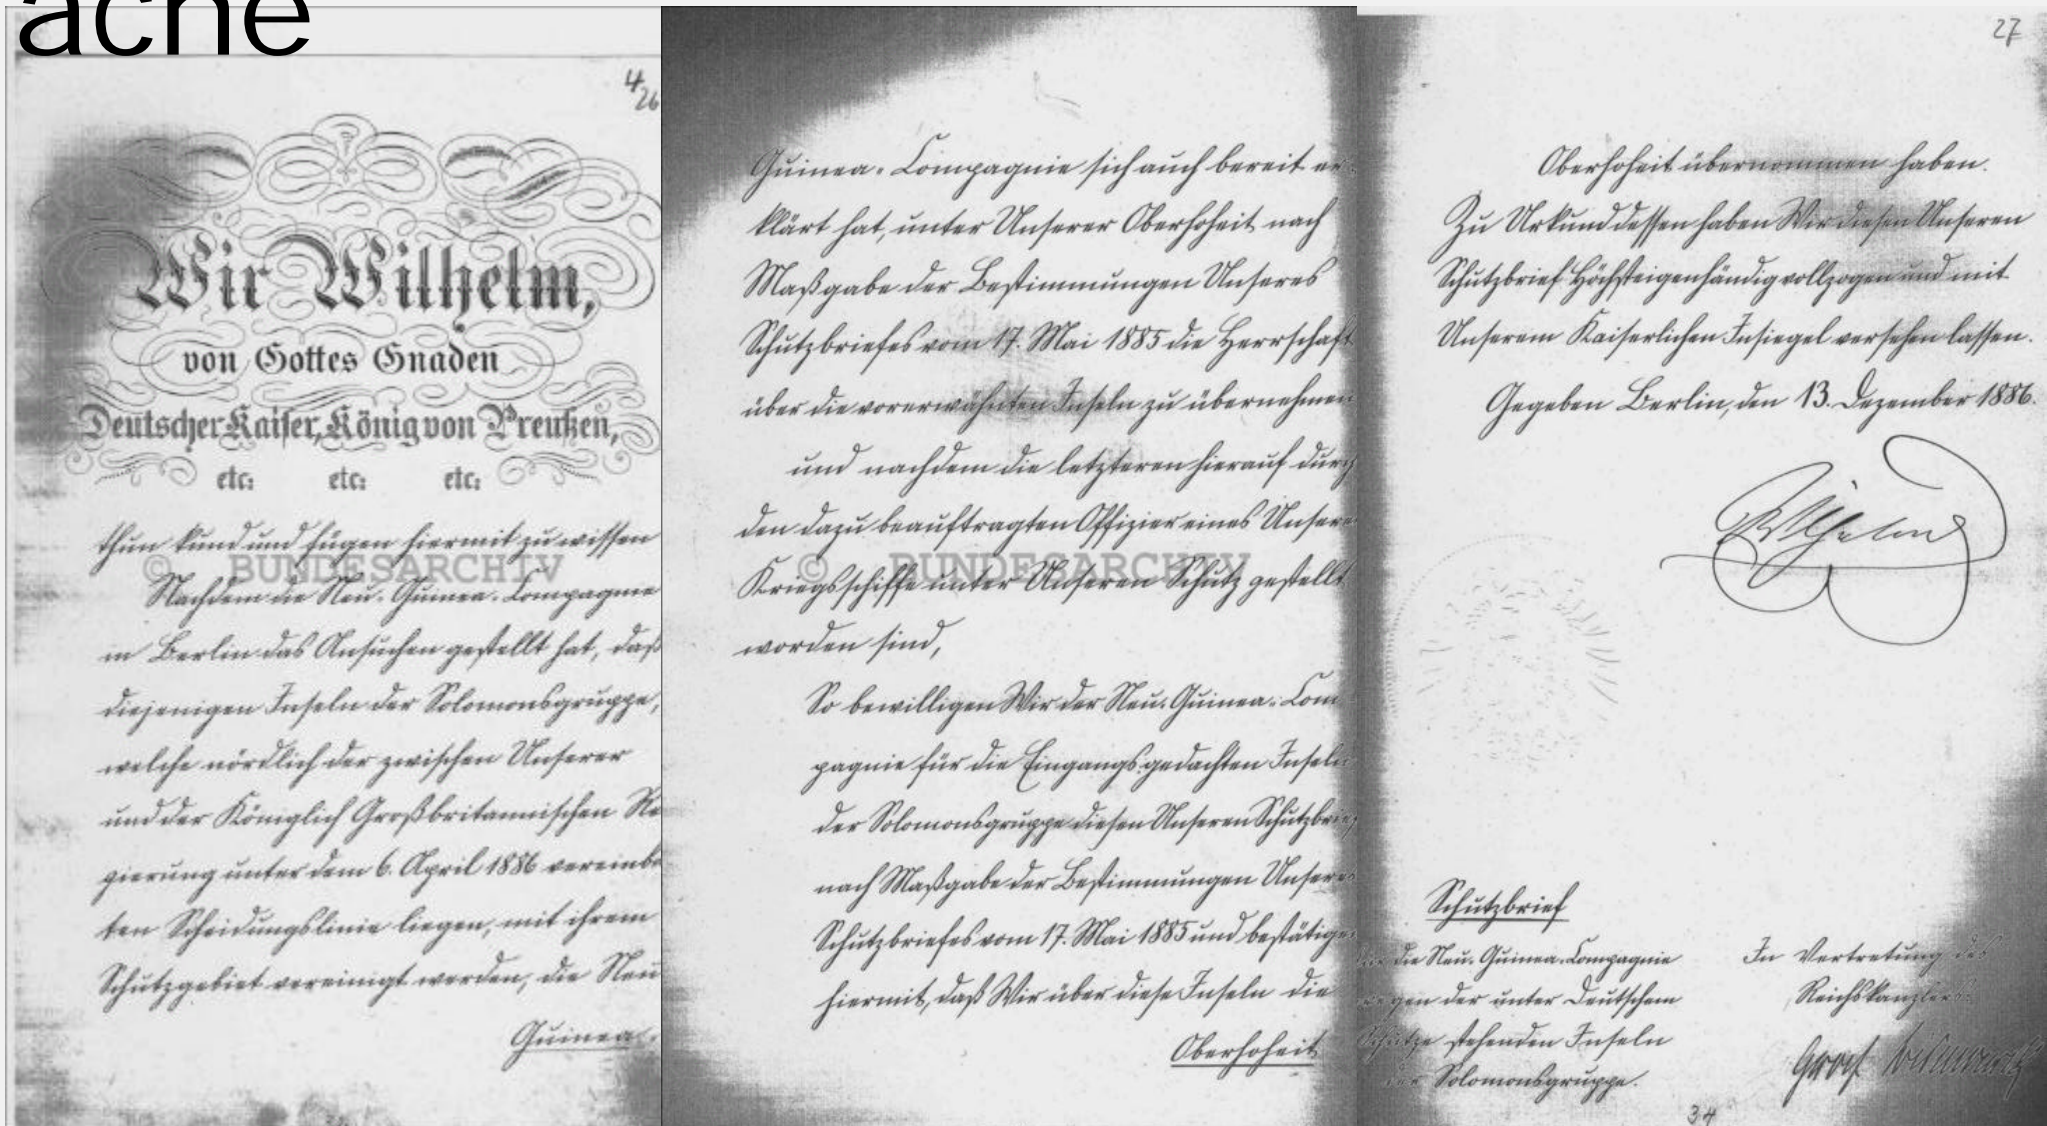 ache
4/26
Wir Wilhelm,
von Gottes Gnaden
Deutscher Kaiser, König von Preußen,
etc: etc: etc:
thun kund und fügen hiermit zu wissen
© BUNDESARCHIV
Nachdem die Neu-Guinea-Compagnie
in Berlin das Ansuchen gestellt hat, daß
diejenigen Inseln der Solomonsgruppe,
welche nördlich der zwischen Unserer
und der Königlich Großbritannischen Re
gierung unter dem 6. April 1886 vereinba
ten Scheidungslinie liegen, mit ihrem
Schutzgebiet vereinigt werden, die Neu
Guinea-
Guinea-Compagnie sich auch bereit er-
klärt hat, unter Unserer Oberhoheit nach
Maßgabe der Bestimmungen Unseres
Schutzbriefes vom 17. Mai 1885 die Herrschaft
über die vorerwähnten Inseln zu übernehmen
und nachdem die letzteren hierauf durch
den dazu beauftragten Offizier eines Unserer
© BUNDESARCHIV
Kriegsschiffe unter Unseren Schutz gestellt
worden sind,
So bewilligen Wir der Neu-Guinea-Com
pagnie für die Eingangs gedachten Inseln
der Solomonsgruppe diesen Unseren Schutzbrief
nach Maßgabe der Bestimmungen Unseres
Schutzbriefes vom 17. Mai 1885 und bestätigen
hiermit, daß Wir über diese Inseln die
Oberhoheit
27
Oberhoheit übernommen haben.
Zu Urkund dessen haben Wir diesen Unseren
Schutzbrief Höchsteigenhändig vollzogen und mit
Unserem Kaiserlichen Insiegel versehen lassen.
Gegeben Berlin, den 13. Dezember 1886.
Wilhelm
Schutzbrief
für die Neu-Guinea-Compagnie
wegen der unter Deutschem
Schutze stehenden Inseln
der Solomonsgruppe.
In Vertretung des
Reichskanzlers.
Graf Bismarck
34